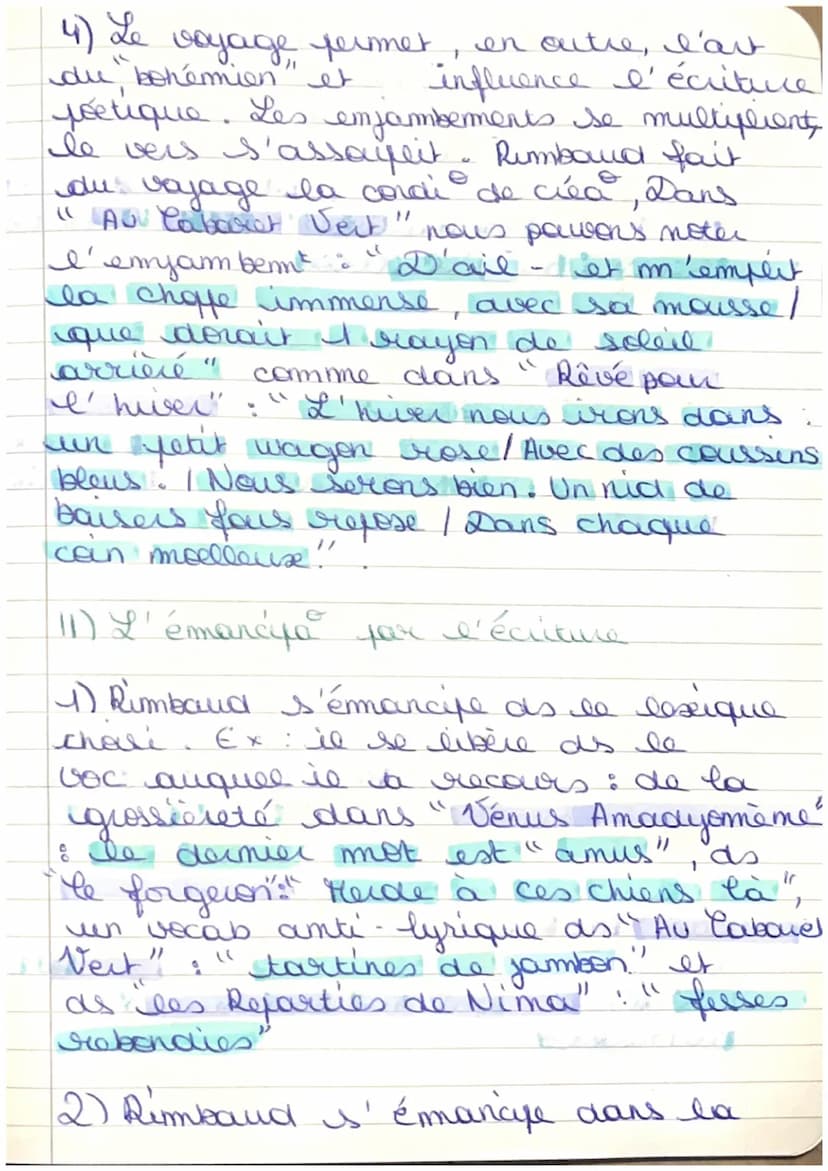 4) Le voyage permet, en outre, l'art
du "bohémien" et influence l'écriture
poétique. Les enjambements se multiplient,
le vers s'assouplit. Rimbaud fait
du voyage la condi° de créa°, Dans
"Au Cabaret Vert" nous pouvons noter
l'enjambemt : "D'ail - et m'emplit
la choppe immense, avec sa mousse /
que dorait 1 rayon de soleil
arriéré" comme dans "Rêvé pour
l'hiver" : "L'hiver nous irons dans
un petit wagon rose / Avec des coussins
bleus. / Nous serons bien. Un nid de
baisers fous repose / Dans chaque
coin moelleux".
II) L'émancipa° par l'écriture
1) Rimbaud s'émancipe ds le lexique
choisi. Ex : il se libère ds le
voc auquel il a recours : de la
grossièreté dans "Vénus Anadyomème"
: le dernier mot est "anus", ds
"le forgeron": "Merde à ces chiens là",
un vocab anti-lyrique ds "Au Cabaret
Vert" : "tartines de jambon" et
ds "les Reparties de Nina" : "fesses
rebondies"
2) Rimbaud s'émancipe dans la